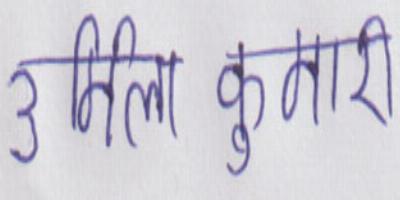 उर्मिला कुमारी